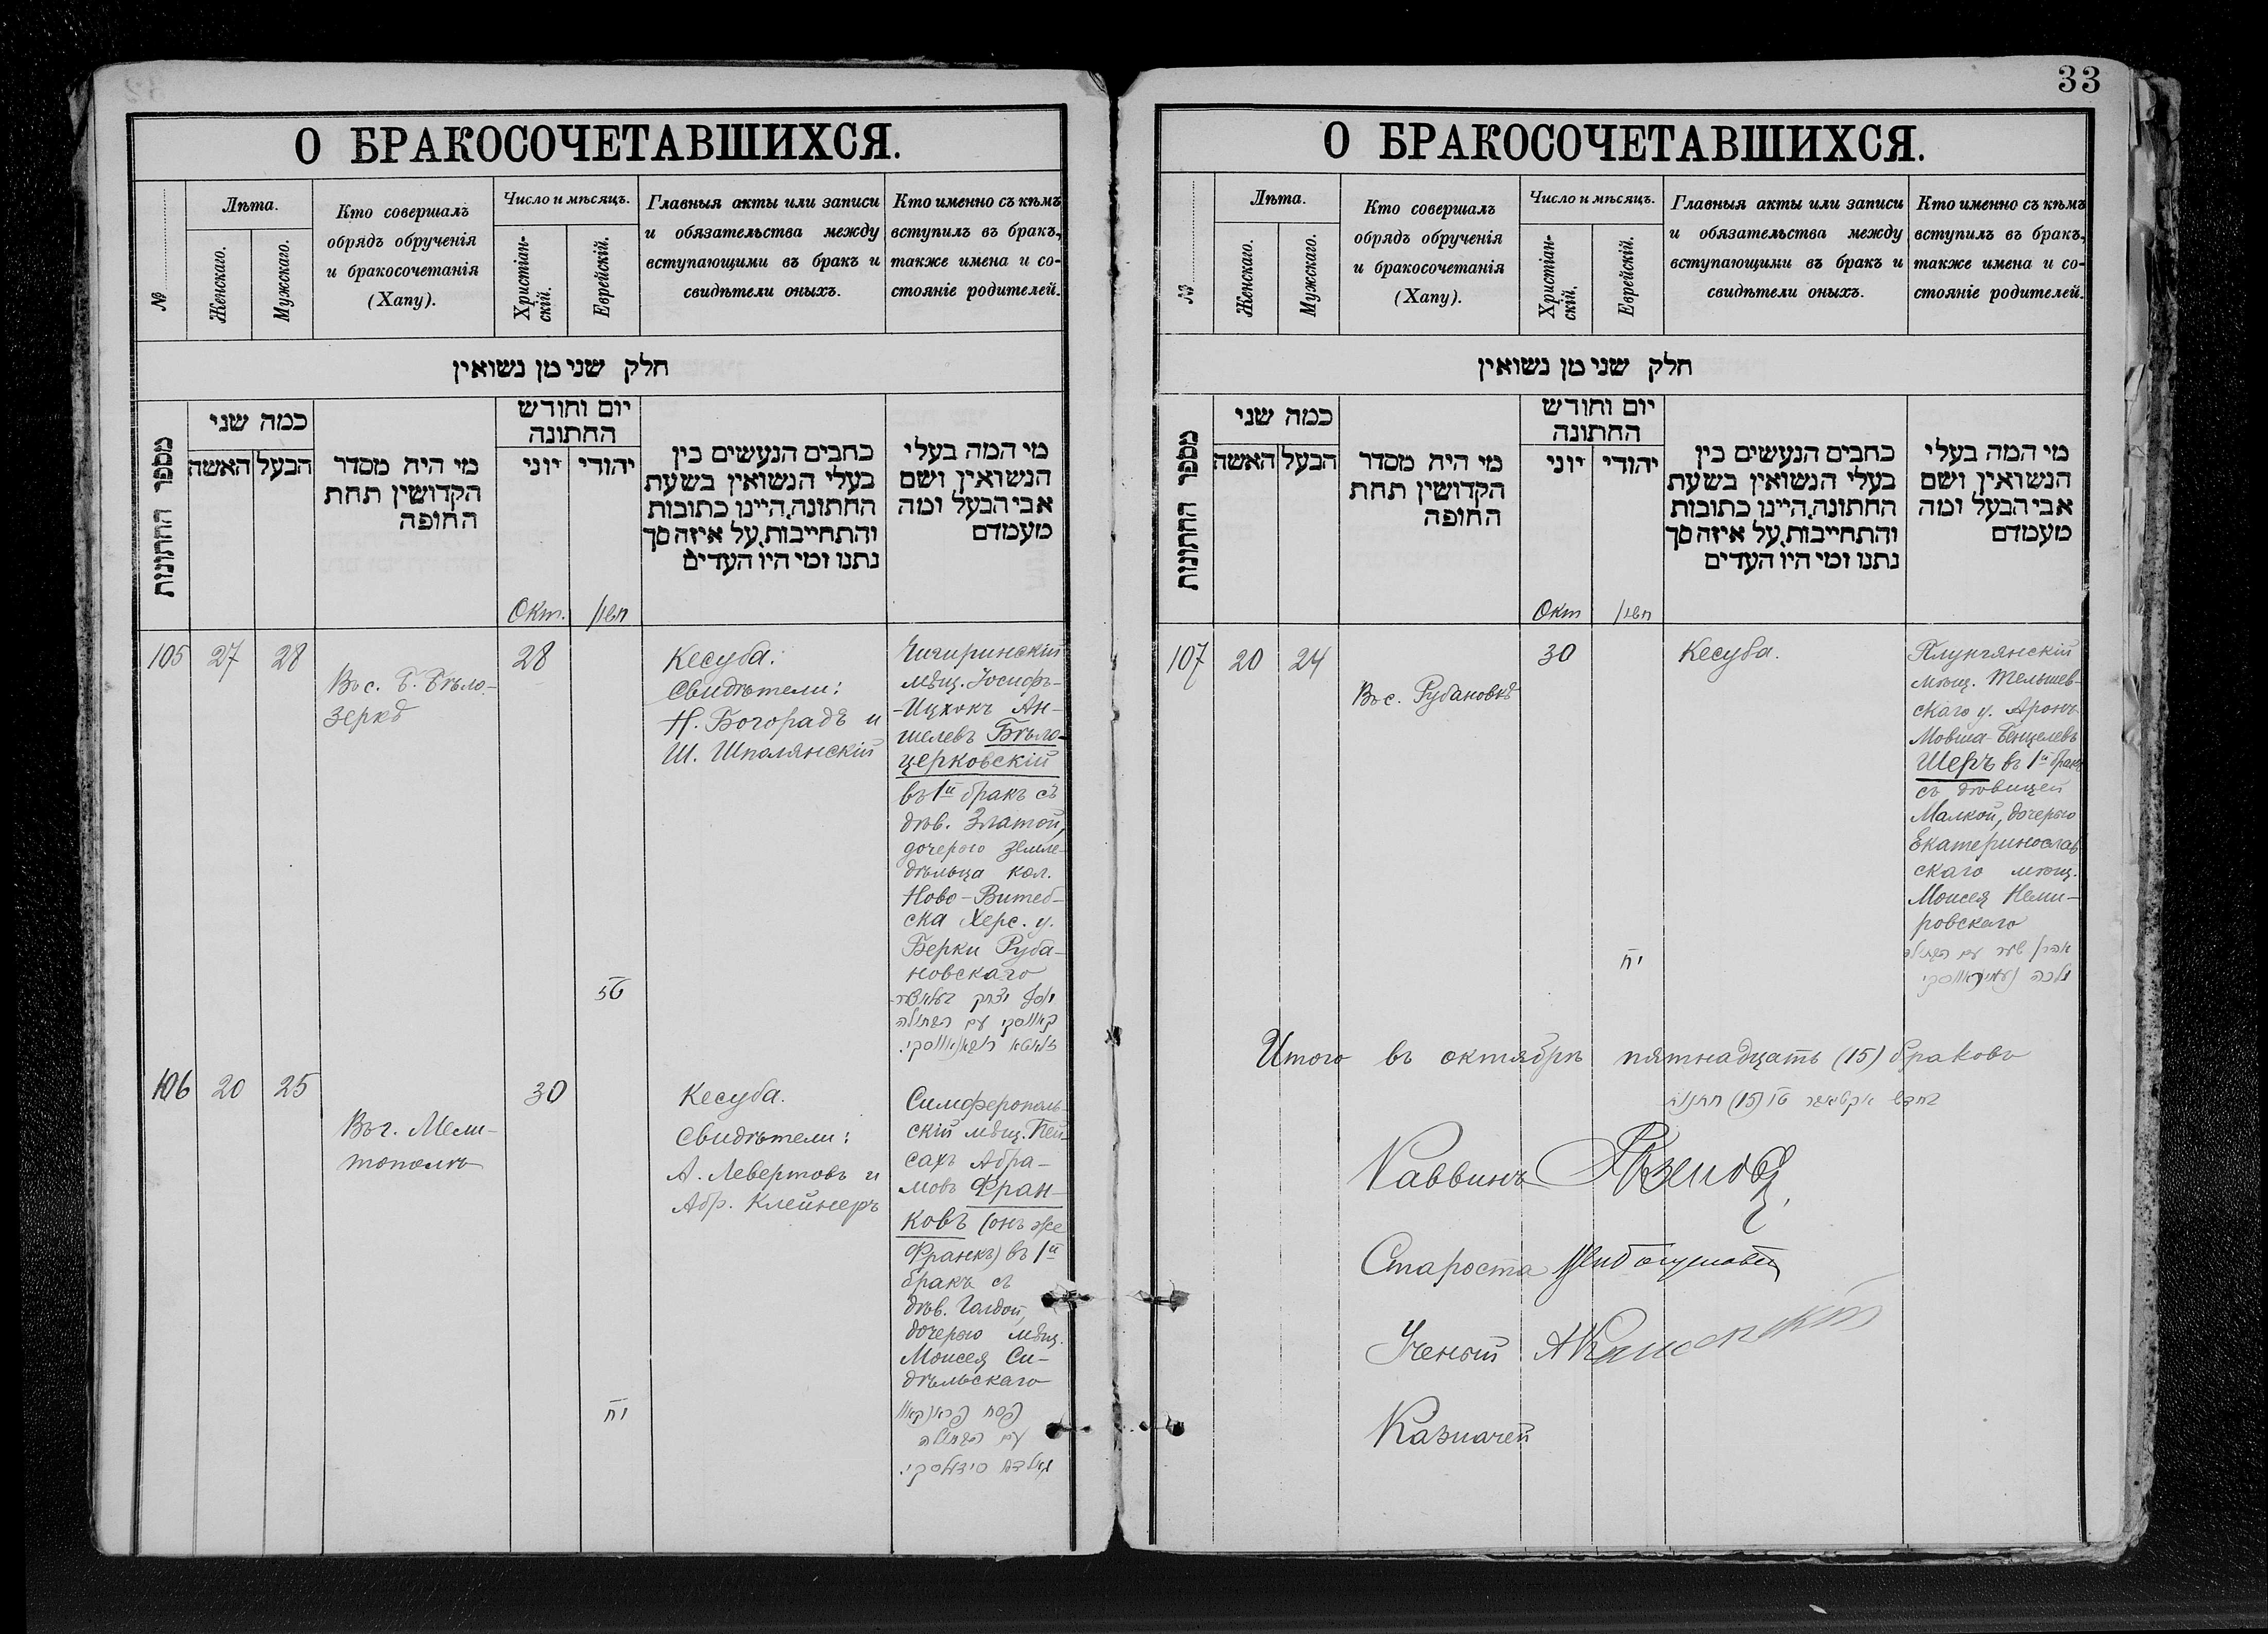 33
О БРАКОСОЧЕТАВШИХСЯ.
№
Лѣта.
Женскаго.
Мужскаго.
Кто совершалъ
обрядъ обрученія
и бракосочетанія
(Хапу).
Число и мѣсяцъ.
Христіан-
скій.
Еврейскій.
Главныя акты или записи
и обязательства между
вступающими въ бракъ и
свидѣтели оныхъ.
Кто именно съ кѣмъ
вступилъ въ бракъ,
также имена и со-
стояніе родителей.
חלק שני מן נשואין
מספר החתונות
כמה שני
הבעל
האשה
מי היה מסדר
הקדושין תחת
החופה
יום וחודש
החתונה
יהודי
יוני
כתבים הנעשים בין
בעלי הנשואין בשעת
החתונה, היינו כתובות
והתחייבות, על איזה סך
נתנו ומי היו העדים
מי המה בעלי
הנשואין ושם
אבי הבעל ומה
מעמדם
Окт.
חשון
105
27
28
Въ с. Б. Бѣло-
зеркѣ
28
טז
Кесуба.
Свидѣтели:
Н. Богорадъ и
Ш. Шполянскій
Чигиринскій
мѣщ. Іосифъ-
-Ицхокъ Ан-
шелевъ Бѣло-
церковскій
въ 1й бракъ съ
дѣв. Златой,
дочерью земле-
дѣльца кол.
Ново-Витеб-
ска Херс. у.
Берки Руба-
новскаго
יוסף יצחק בעלאצער
קאווסקי עם הבתולה
זלאטא רובאנאווסקי.
106
20
25
Въ г. Мели-
тополѣ
30
יח
Кесуба.
Свидѣтели:
А. Левертовъ и
Абр. Клейнеръ
Симферополь-
скій мѣщ. Пей-
сахъ Абра-
мовъ Фран-
ковъ (онъ же
Франкъ) въ 1й
бракъ съ
дѣв. Голдой,
дочерью мѣщ.
Моисея Си-
дѣльскаго
פסח פראנקאוו
עם הבתולה
גאלדא סידעלסקי.
О БРАКОСОЧЕТАВШИХСЯ.
№
Лѣта.
Женскаго.
Мужскаго.
Кто совершалъ
обрядъ обрученія
и бракосочетанія
(Хапу).
Число и мѣсяцъ.
Христіан-
скій.
Еврейскій.
Главныя акты или записи
и обязательства между
вступающими въ бракъ и
свидѣтели оныхъ.
Кто именно съ кѣмъ
вступилъ въ бракъ,
также имена и со-
стояніе родителей.
חלק שני מן נשואין
מספר החתונות
כמה שני
הבעל
האשה
מי היה מסדר
הקדושין תחת
החופה
יום וחודש
החתונה
יהודי
יוני
כתבים הנעשים בין
בעלי הנשואין בשעת
החתונה, היינו כתובות
והתחייבות, על איזה סך
נתנו ומי היו העדים
מי המה בעלי
הנשואין ושם
אבי הבעל ומה
מעמדם
Окт
חשון
107
20
24
Въ с. Рубановкѣ
30
יח
Кесуба.
Плунгянскій
мѣщ. Тельшев-
скаго у. Аронъ
Мовша-Бенцелевъ
Шеръ въ 1й бракъ
съ дѣвицей
Малкой, дочерью
Екатеринослав
скаго мѣщ.
Моисея Неми-
ровскаго
אהרן שער עם הבתולה
מלכה נעמיראווסקי
Итого въ октябрѣ пятнадцать (15) браковъ
בחדש אקטאבר טו (15) חתונות
Раввинъ
Староста
Ученый
Казначей